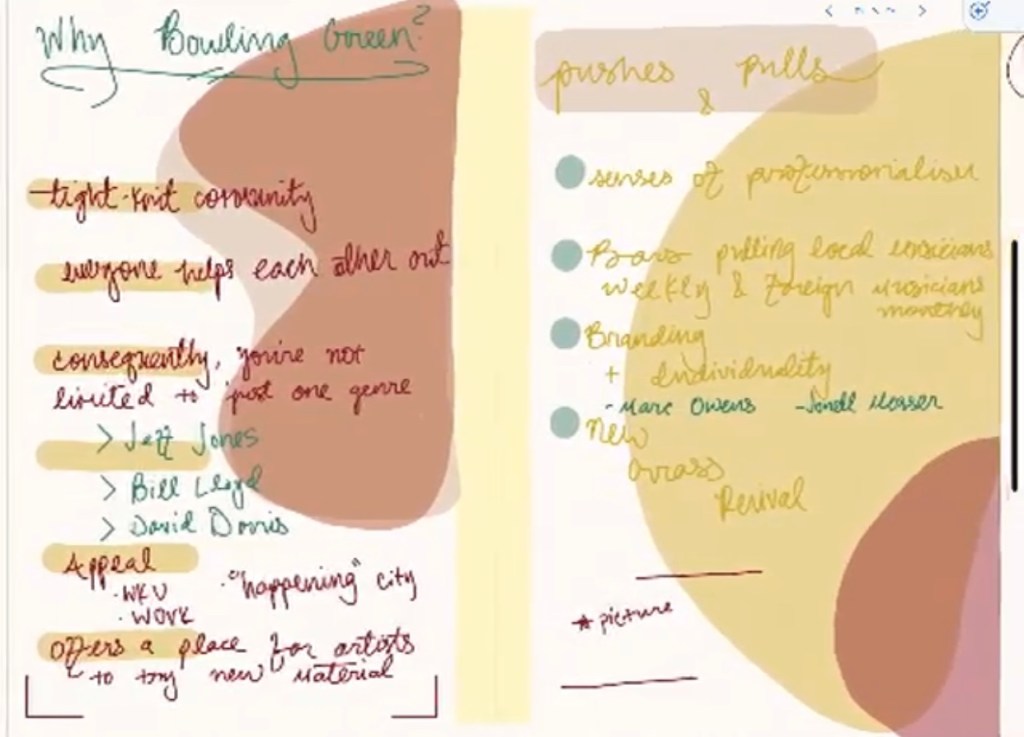 Why Bowling Green?
-tight-knit community
everyone helps each other out
consequently, you're not
limited to just one genre
> Jeff Jones
> Bill Lloyd
> David Dorris
Appeal
·WKU
·WOVK
·"happening" city
Offers a place for artists
to try new material
pushes & pulls
senses of professionalism
Bars pulling local musicians
weekly & foreign musicians
monthly
Branding
+ Individuality
-Marc Owens -Jonell Mosser
New
Grass
Revival
* picture